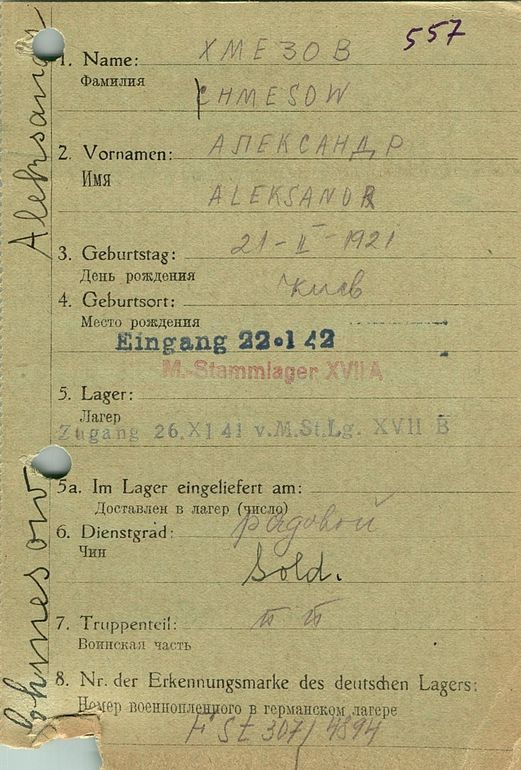 557
1. Name: ХМЕЗОВ
Фамилия
CHMESOW
2. Vornamen: АЛЕКСАНДР
Имя
ALEKSANDR
3. Geburtstag: 21-II-1921
День рождения
4. Geburtsort: Киев
Место рождения
Eingang 22.1 42
M.-Stammlager XVII A
5. Lager:
Лагерь
Zugang 26.XI 41 v.M.St.Lg. XVII B
5a. Im Lager eingeliefert am:
Доставлен в лагерь (число)
6. Dienstgrad: рядовой
Чин
Sold.
7. Truppenteil:
Воинская часть
8. Nr. der Erkennungsmarke des deutschen Lagers:
Номер военнопленного в германском лагере
St 307/4894
Chmesow Aleksandr